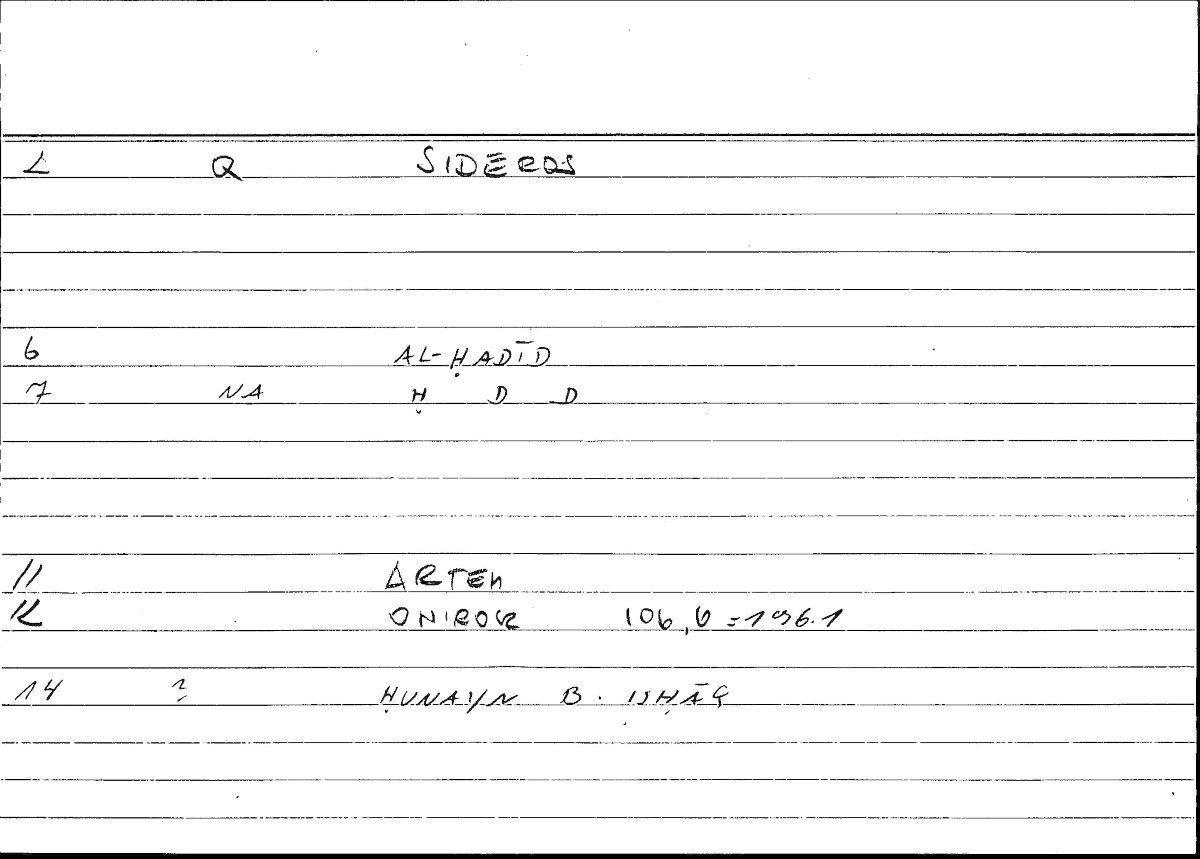 L Q SIDĒROS
6 AL-ḤADĪD
7 NA Ḥ D D
11 ARTEM
12 ONIROCR 106,6=196.1
14 ? ḤUNAYN B. ISḤĀQ